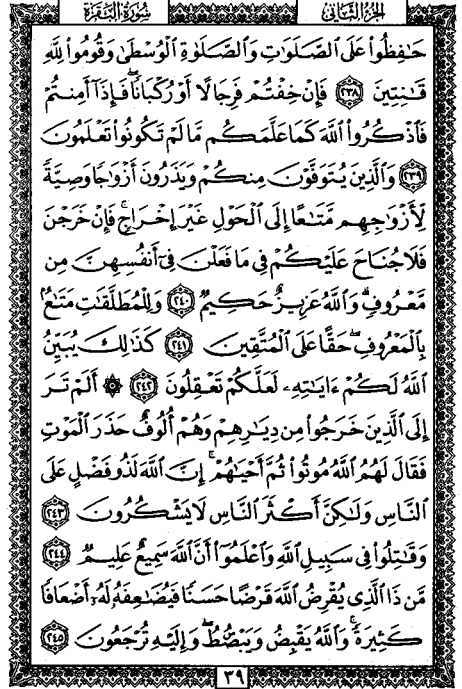 سُورَةُ البَقَرَةِ الجُزءُ الثَّانِي
حَـٰفِظُوا۟ عَلَى ٱلصَّلَوَٰتِ وَٱلصَّلَوٰةِ ٱلْوُسْطَىٰ وَقُومُوا۟ لِلَّهِ
قَـٰنِتِينَ ٢٣٨ فَإِنْ خِفْتُمْ فَرِجَالًا أَوْ رُكْبَانًا ۖ فَإِذَآ أَمِنتُمْ
فَٱذْكُرُوا۟ ٱللَّهَ كَمَا عَلَّمَكُم مَّا لَمْ تَكُونُوا۟ تَعْلَمُونَ
٢٣٩ وَٱلَّذِينَ يُتَوَفَّوْنَ مِنكُمْ وَيَذَرُونَ أَزْوَٰجًا وَصِيَّةً
لِّأَزْوَٰجِهِم مَّتَـٰعًا إِلَى ٱلْحَوْلِ غَيْرَ إِخْرَاجٍ ۚ فَإِنْ خَرَجْنَ
فَلَا جُنَاحَ عَلَيْكُمْ فِى مَا فَعَلْنَ فِىٓ أَنفُسِهِنَّ مِن
مَّعْرُوفٍ ۗ وَٱللَّهُ عَزِيزٌ حَكِيمٌ ٢٤٠ وَلِلْمُطَلَّقَـٰتِ مَتَـٰعٌۢ
بِٱلْمَعْرُوفِ ۖ حَقًّا عَلَى ٱلْمُتَّقِينَ ٢٤١ كَذَٰلِكَ يُبَيِّنُ
ٱللَّهُ لَكُمْ ءَايَـٰتِهِۦ لَعَلَّكُمْ تَعْقِلُونَ ٢٤٢ ۞ أَلَمْ تَرَ
إِلَى ٱلَّذِينَ خَرَجُوا۟ مِن دِيَـٰرِهِمْ وَهُمْ أُلُوفٌ حَذَرَ ٱلْمَوْتِ
فَقَالَ لَهُمُ ٱللَّهُ مُوتُوا۟ ثُمَّ أَحْيَـٰهُمْ ۚ إِنَّ ٱللَّهَ لَذُو فَضْلٍ عَلَى
ٱلنَّاسِ وَلَـٰكِنَّ أَكْثَرَ ٱلنَّاسِ لَا يَشْكُرُونَ ٢٤٣
وَقَـٰتِلُوا۟ فِى سَبِيلِ ٱللَّهِ وَٱعْلَمُوٓا۟ أَنَّ ٱللَّهَ سَمِيعٌ عَلِيمٌ ٢٤٤
مَّن ذَا ٱلَّذِى يُقْرِضُ ٱللَّهَ قَرْضًا حَسَنًا فَيُضَـٰعِفَهُۥ لَهُۥٓ أَضْعَافًا
كَثِيرَةً ۚ وَٱللَّهُ يَقْبِضُ وَيَبْصُۜطُ وَإِلَيْهِ تُرْجَعُونَ ٢٤٥
٣٩